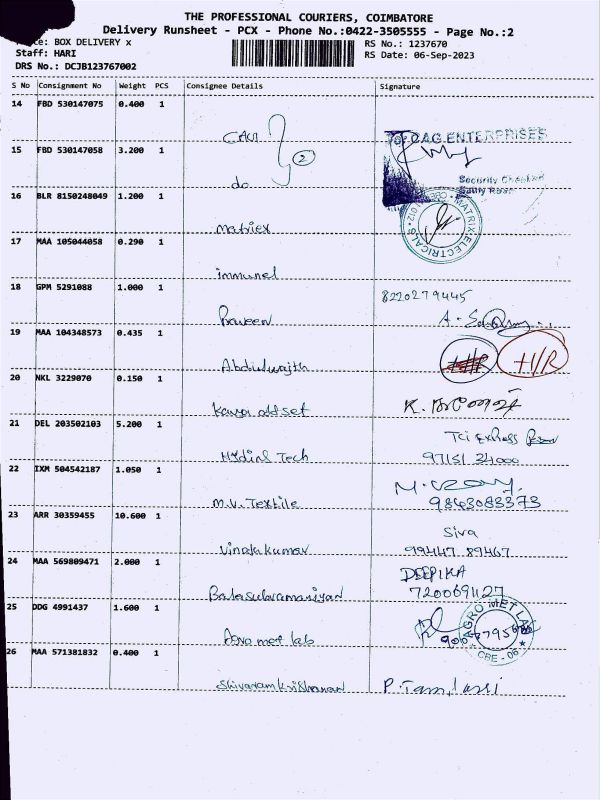 THE PROFESSIONAL COURIERS, COIMBATORE
Delivery Runsheet - PCX - Phone No.:0422-3505555 - Page No.:2
BOX DELIVERY x
RS No.: 1237670
Staff: HARI
RS Date: 06-Sep-2023
DRS No.: DCJB123767002
S No Consignment No Weight PCS Consignee Details Signature
14 FBD 530147075 0.400 1
ENTERPRISES
15 FBD 530147058 3.200 1
2
Security Checked
do
16 BLR 8150248049 1.200 1
MATRIX ELECTRICALS
Matriex
17 MAA 105044058 0.290 1
immunel
18 GPM 5291088 1.000 1 8220279445
Praveen
19 MAA 104348573 0.435 1
H/R
Abdulwajith
20 NKL 3229070 0.150 1
21 DEL 203502103 5.200 1
TCI Express
Tech 97151 34000
22 IXM 504542187 1.050 1
M.V. Textile 9843083373
23 ARR 30359455 10.600 1
Siva
99447 89467
24 MAA 569809471 2.000 1
DEEPIKA
Balasubramaniyan 7200691127
25 DDG 4991437 1.600 1
AGRO MET LAB
CBE - 06
met lab
26 MAA 571381832 0.400 1
Shivaramkrishanan